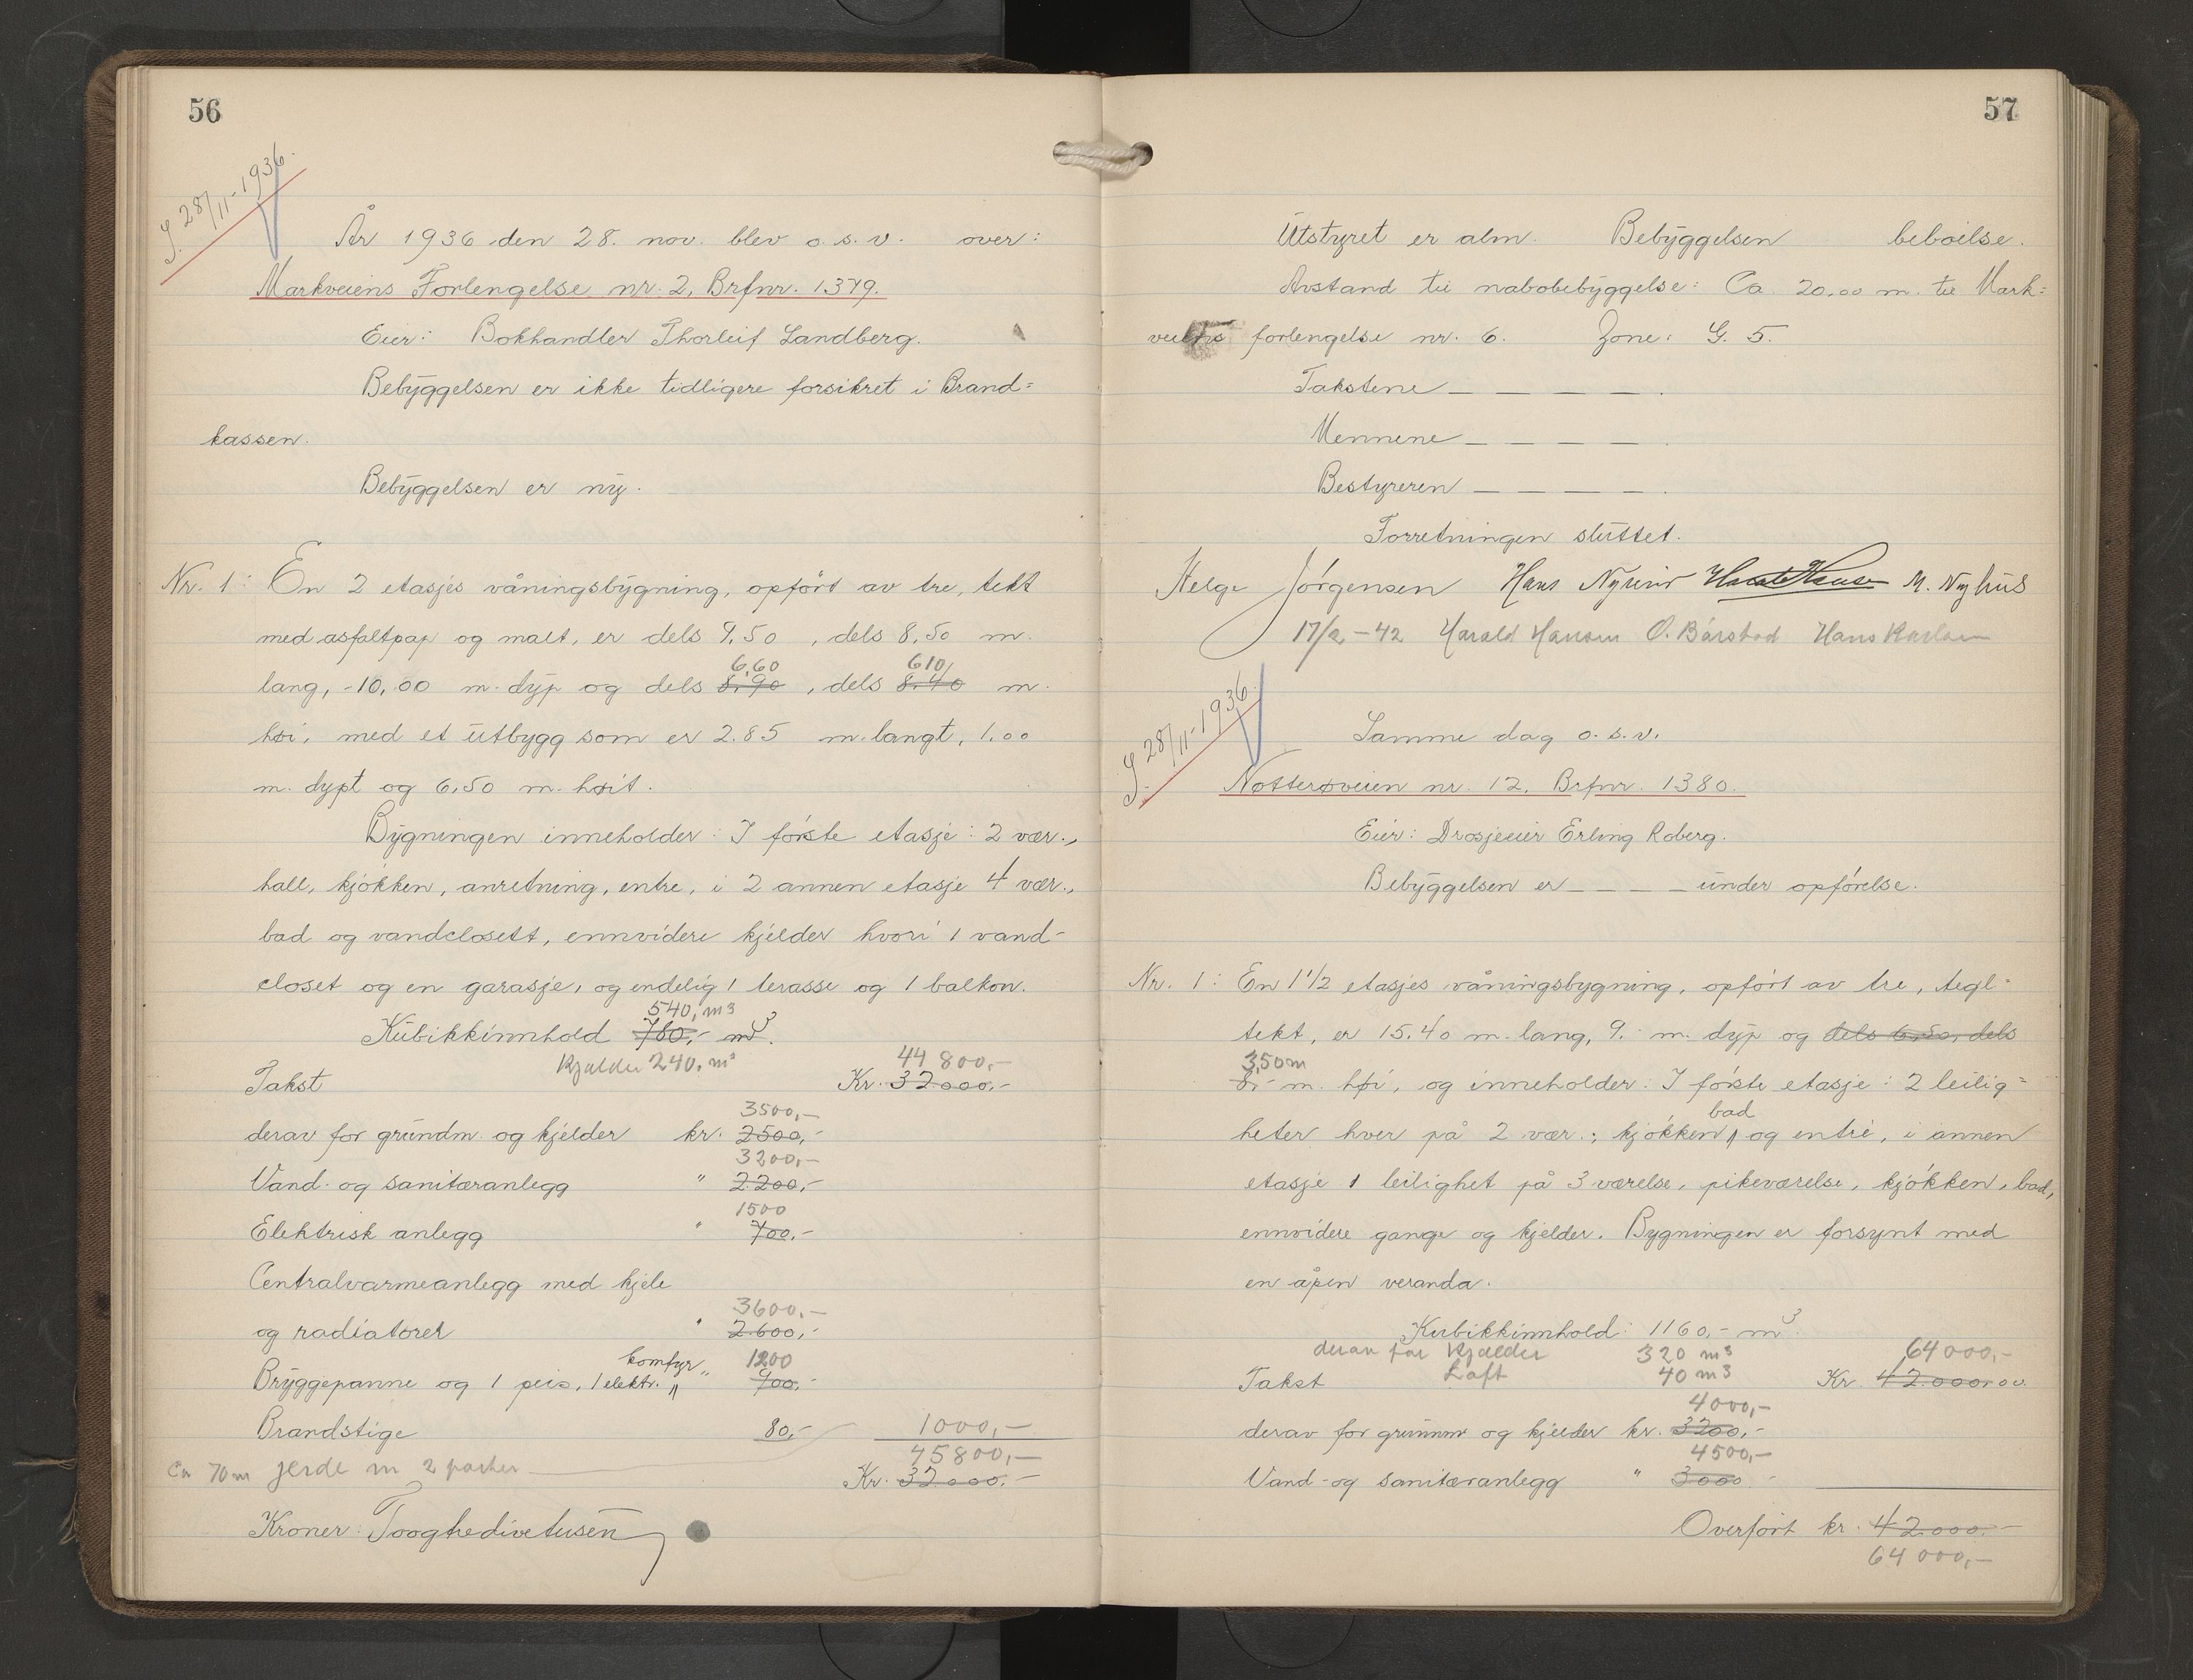 56
J. 28/11-1936.
År 1936 den 28. nov. blev o. s. v. over:
Markveiens Forlengelse nr. 2, Brfnr. 1379.
Eier: Bokhandler Thorleif Landberg.
Bebyggelsen er ikke tidligere forsikret i Brand=
kassen.
Bebyggelsen er ny.
Nr. 1: En 2 etasjes våningsbygning, opført av tre, tekt
med asfaltpap og malt, er dels 9,50 , dels 8,50 m.
6,60 610
lang, -10,00 m. dyp og dels 8,90 , dels 8,40 m.
høi, med et utbygg som er 2.85 m. langt, 1,00
m. dypt og 6,50 m. høit.
Bygningen inneholder: I første etasje: 2 vær.,
hall, kjøkken, anretning, entre, i 2 annen etasje 4 vær.,
bad og vandclosett, ennvidere kjelder hvori 1 vand-
closet og en garasje, og endelig 1 terasse og 1 balkon.
540, m3
Kubikkinnhold 760,- m3.
Kjelder 240, m3 44 800,-
Takst Kr. 32000,-
3500,-
derav for grundm. og kjelder kr. 2500,-
3200,-
Vand- og sanitæranlegg " 2.200,-
1500
Elektrisk anlegg " 700,-
Centralvarmeanlegg med kjele
3600,-
og radiatorer " 2.600,-
komfyr 1200
Bryggepanne og 1 peis, 1 elektr. " 900,-
Brandstige 80,- 1000,-
45800,-
Ca 70m gjerde m 2 porter
Kr. 32000,-
Kroner: Toogtredivetusen
57
Utstyret er alm. Bebyggelsen beboilse.
Avstand til nabobebyggelse: Ca 20,00 m. til Mark=
veiens forlengelse nr. 6. Zone: G. 5.
Takstene — — — — .
Mennene — — — — .
Bestyreren — — — — .
Forretningen sluttet.
Helge Jörgensen Hans M. Nyhus
17/2-42 Harald Hansen O. Bårstad Hans Karlsen
J. 28/11-1936.
Samme dag o. s. v.
Nøtterøveien nr. 12, Brfnr. 1380.
Eier: Drosjeeier Erling Roberg.
Bebyggelsen er — — — — under opførelse.
Nr. 1: En 1 1/2 etasjes våningsbygning, opført av tre, tegl-
tekt, er 15.40 m. lang, 9.- m. dyp og dels 6,50, dels
3,50m
8,- m. høi, og inneholder: I første etasje: 2 leilig=
bad
heter hver på 2 vær., kjøkken, og entré, i annen
etasje 1 leilighet på 3 værelse, pikeværelse, kjøkken, bad,
ennvidere gange og kjelder. Bygningen er forsynt med
en åpen veranda.
Kubikkinnhold: 1160,- m3.
derav for Kjælder 320 m3 64000,-
Takst Loft 40 m3 Kr. 42.000,00.
4000,-
derav for grunnm og kjelder kr. 3200,-
4500,-
Vand- og sanitæranlegg " 3000 -
Overført kr. 42.000,-
64000,-